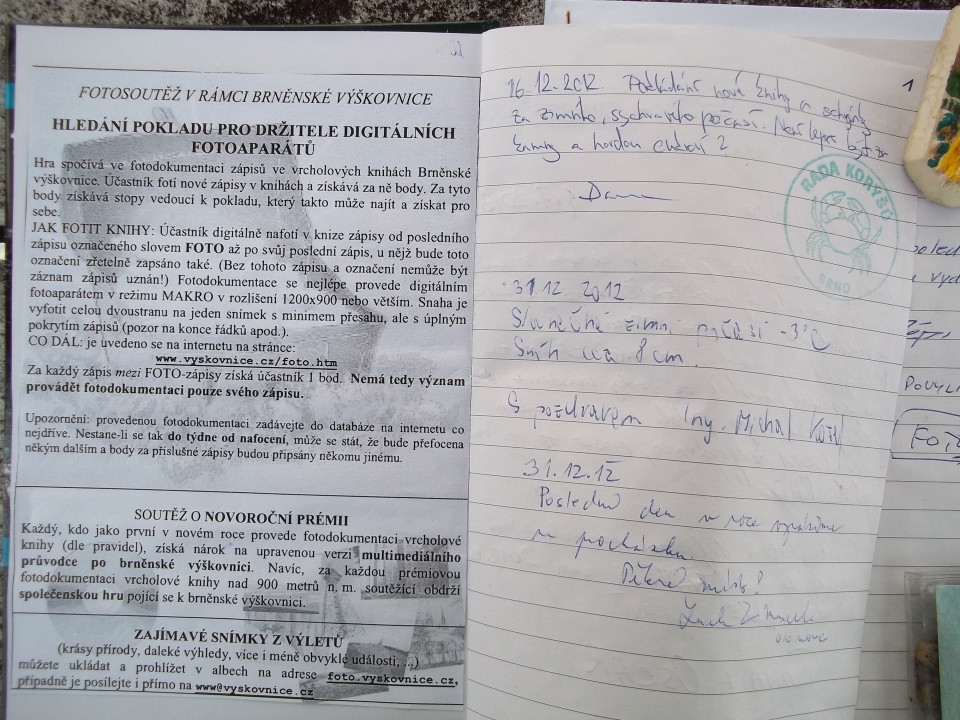 FOTOSOUTĚŽ V RÁMCI BRNĚNSKÉ VÝŠKOVNICE
HLEDÁNÍ POKLADU PRO DRŽITELE DIGITÁLNÍCH
FOTOAPARÁTŮ
Hra spočívá ve fotodokumentaci zápisů ve vrcholových knihách Brněnské
výškovnice. Účastník fotí nové zápisy v knihách a získává za ně body. Za tyto
body získává stopy vedoucí k pokladu, který takto může najít a získat pro
sebe.
JAK FOTIT KNIHY: Účastník digitálně nafotí v knize zápisy od posledního
zápisu označeného slovem FOTO až po svůj poslední zápis, u nějž bude toto
označení zřetelně zapsáno také. (Bez tohoto zápisu a označení nemůže být
záznam zápisů uznán!) Fotodokumentace se nejlépe provede digitálním
fotoaparátem v režimu MAKRO v rozlišení 1200x900 nebo větším. Snaha je
vyfotit celou dvoustranu na jeden snímek s minimem přesahu, ale s úplným
pokrytím zápisů (pozor na konce řádků apod.).
CO DÁL: je uvedeno se na internetu na stránce:
www.vyskovnice.cz/foto.htm
Za každý zápis mezi FOTO-zápisy získá účastník 1 bod. Nemá tedy význam
provádět fotodokumentaci pouze svého zápisu.
Upozornění: provedenou fotodokumentaci zadávejte do databáze na internetu co
nejdříve. Nestane-li se tak do týdne od nafocení, může se stát, že bude přefocena
někým dalším a body za příslušné zápisy budou připsány někomu jinému.
SOUTĚŽ O NOVOROČNÍ PRÉMII
Každý, kdo jako první v novém roce provede fotodokumentaci vrcholové
knihy (dle pravidel), získá nárok na upravenou verzi multimediálního
průvodce po brněnské výškovnici. Navíc, za každou prémiovou
fotodokumentaci vrcholové knihy nad 900 metrů n. m. soutěžící obdrží
společenskou hru pojící se k brněnské výškovnici.
ZAJÍMAVÉ SNÍMKY Z VÝLETŮ
(krásy přírody, daleké výhledy, více i méně obvyklé události, ...)
můžete ukládat a prohlížet v albech na adrese foto.vyskovnice.cz,
případně je posílejte i přímo na www@vyskovnice.cz
1
16.12.2012. nové knihy
za zimního, sychravého počasí.
knihy a
RADA KORÝŠŮ
BRNO
31 12. 2012
Slunečné zimní počasí -3°C
Sníh cca 8 cm.
S pozdravem Ing. Michal
31.12.12
Poslední den v roce
na procházku.
Pěkné